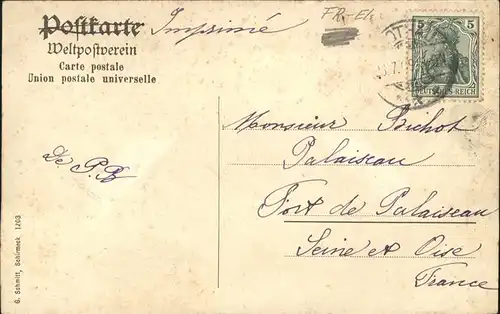 Postkarte Imprimé
Weltpostverein
Carte postale
Union postale universelle
FR-Els
5 5
DEUTSCHES REICH
Monsieur Bichot
Palaiseau
Fort de Palaiseau
Seine et Oise
France
De P.R
G. Schmitt, Schirmeck 1203